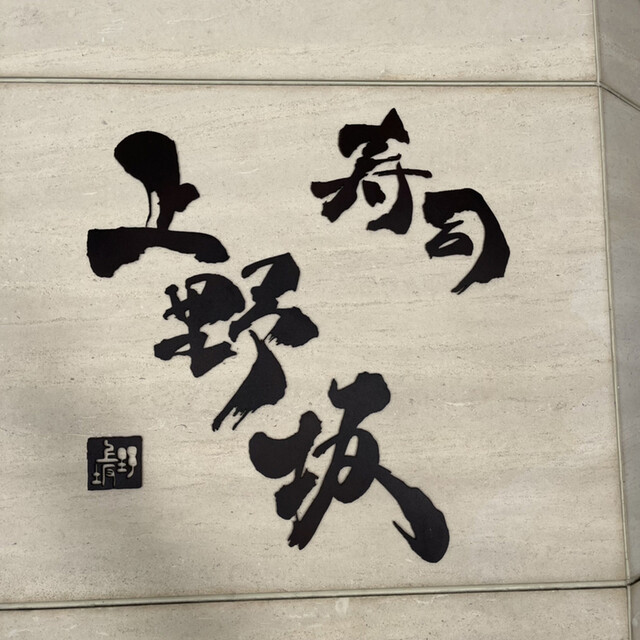 寿司
上野坂